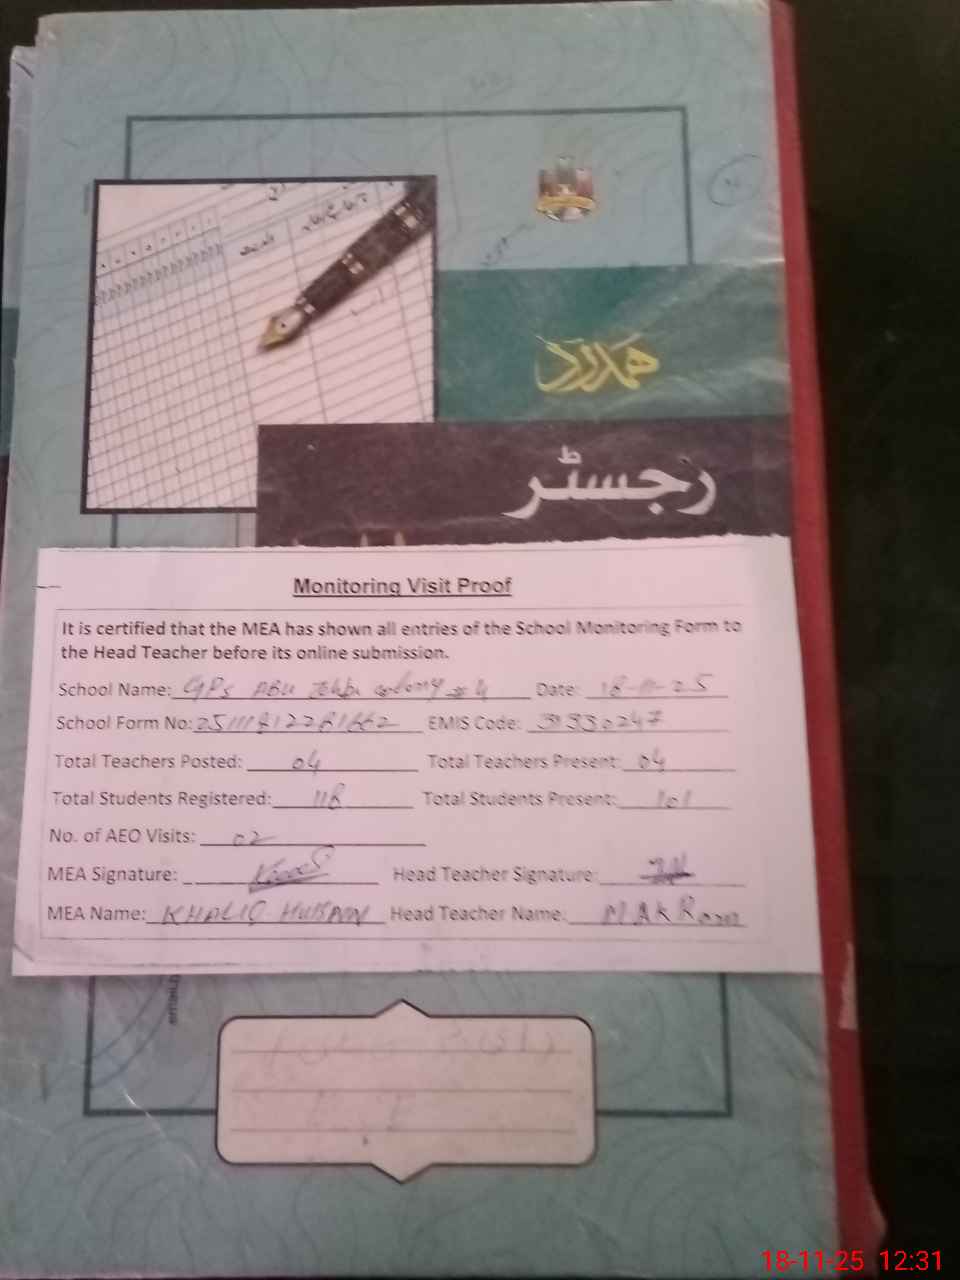 ہمدرد
رجسٹر
Monitoring Visit Proof
It is certified that the MEA has shown all entries of the School Monitoring Form to
the Head Teacher before its online submission.
School Name: GPS ABU Colony # 4 Date: 18-11-25
School Form No: EMIS Code:
Total Teachers Posted: 04 Total Teachers Present: 04
Total Students Registered: 118 Total Students Present: 101
No. of AEO Visits: 02
MEA Signature: Head Teacher Signature:
MEA Name: KHALIQ HUSSAIN Head Teacher Name: MAKRam
18-11-25 12:31